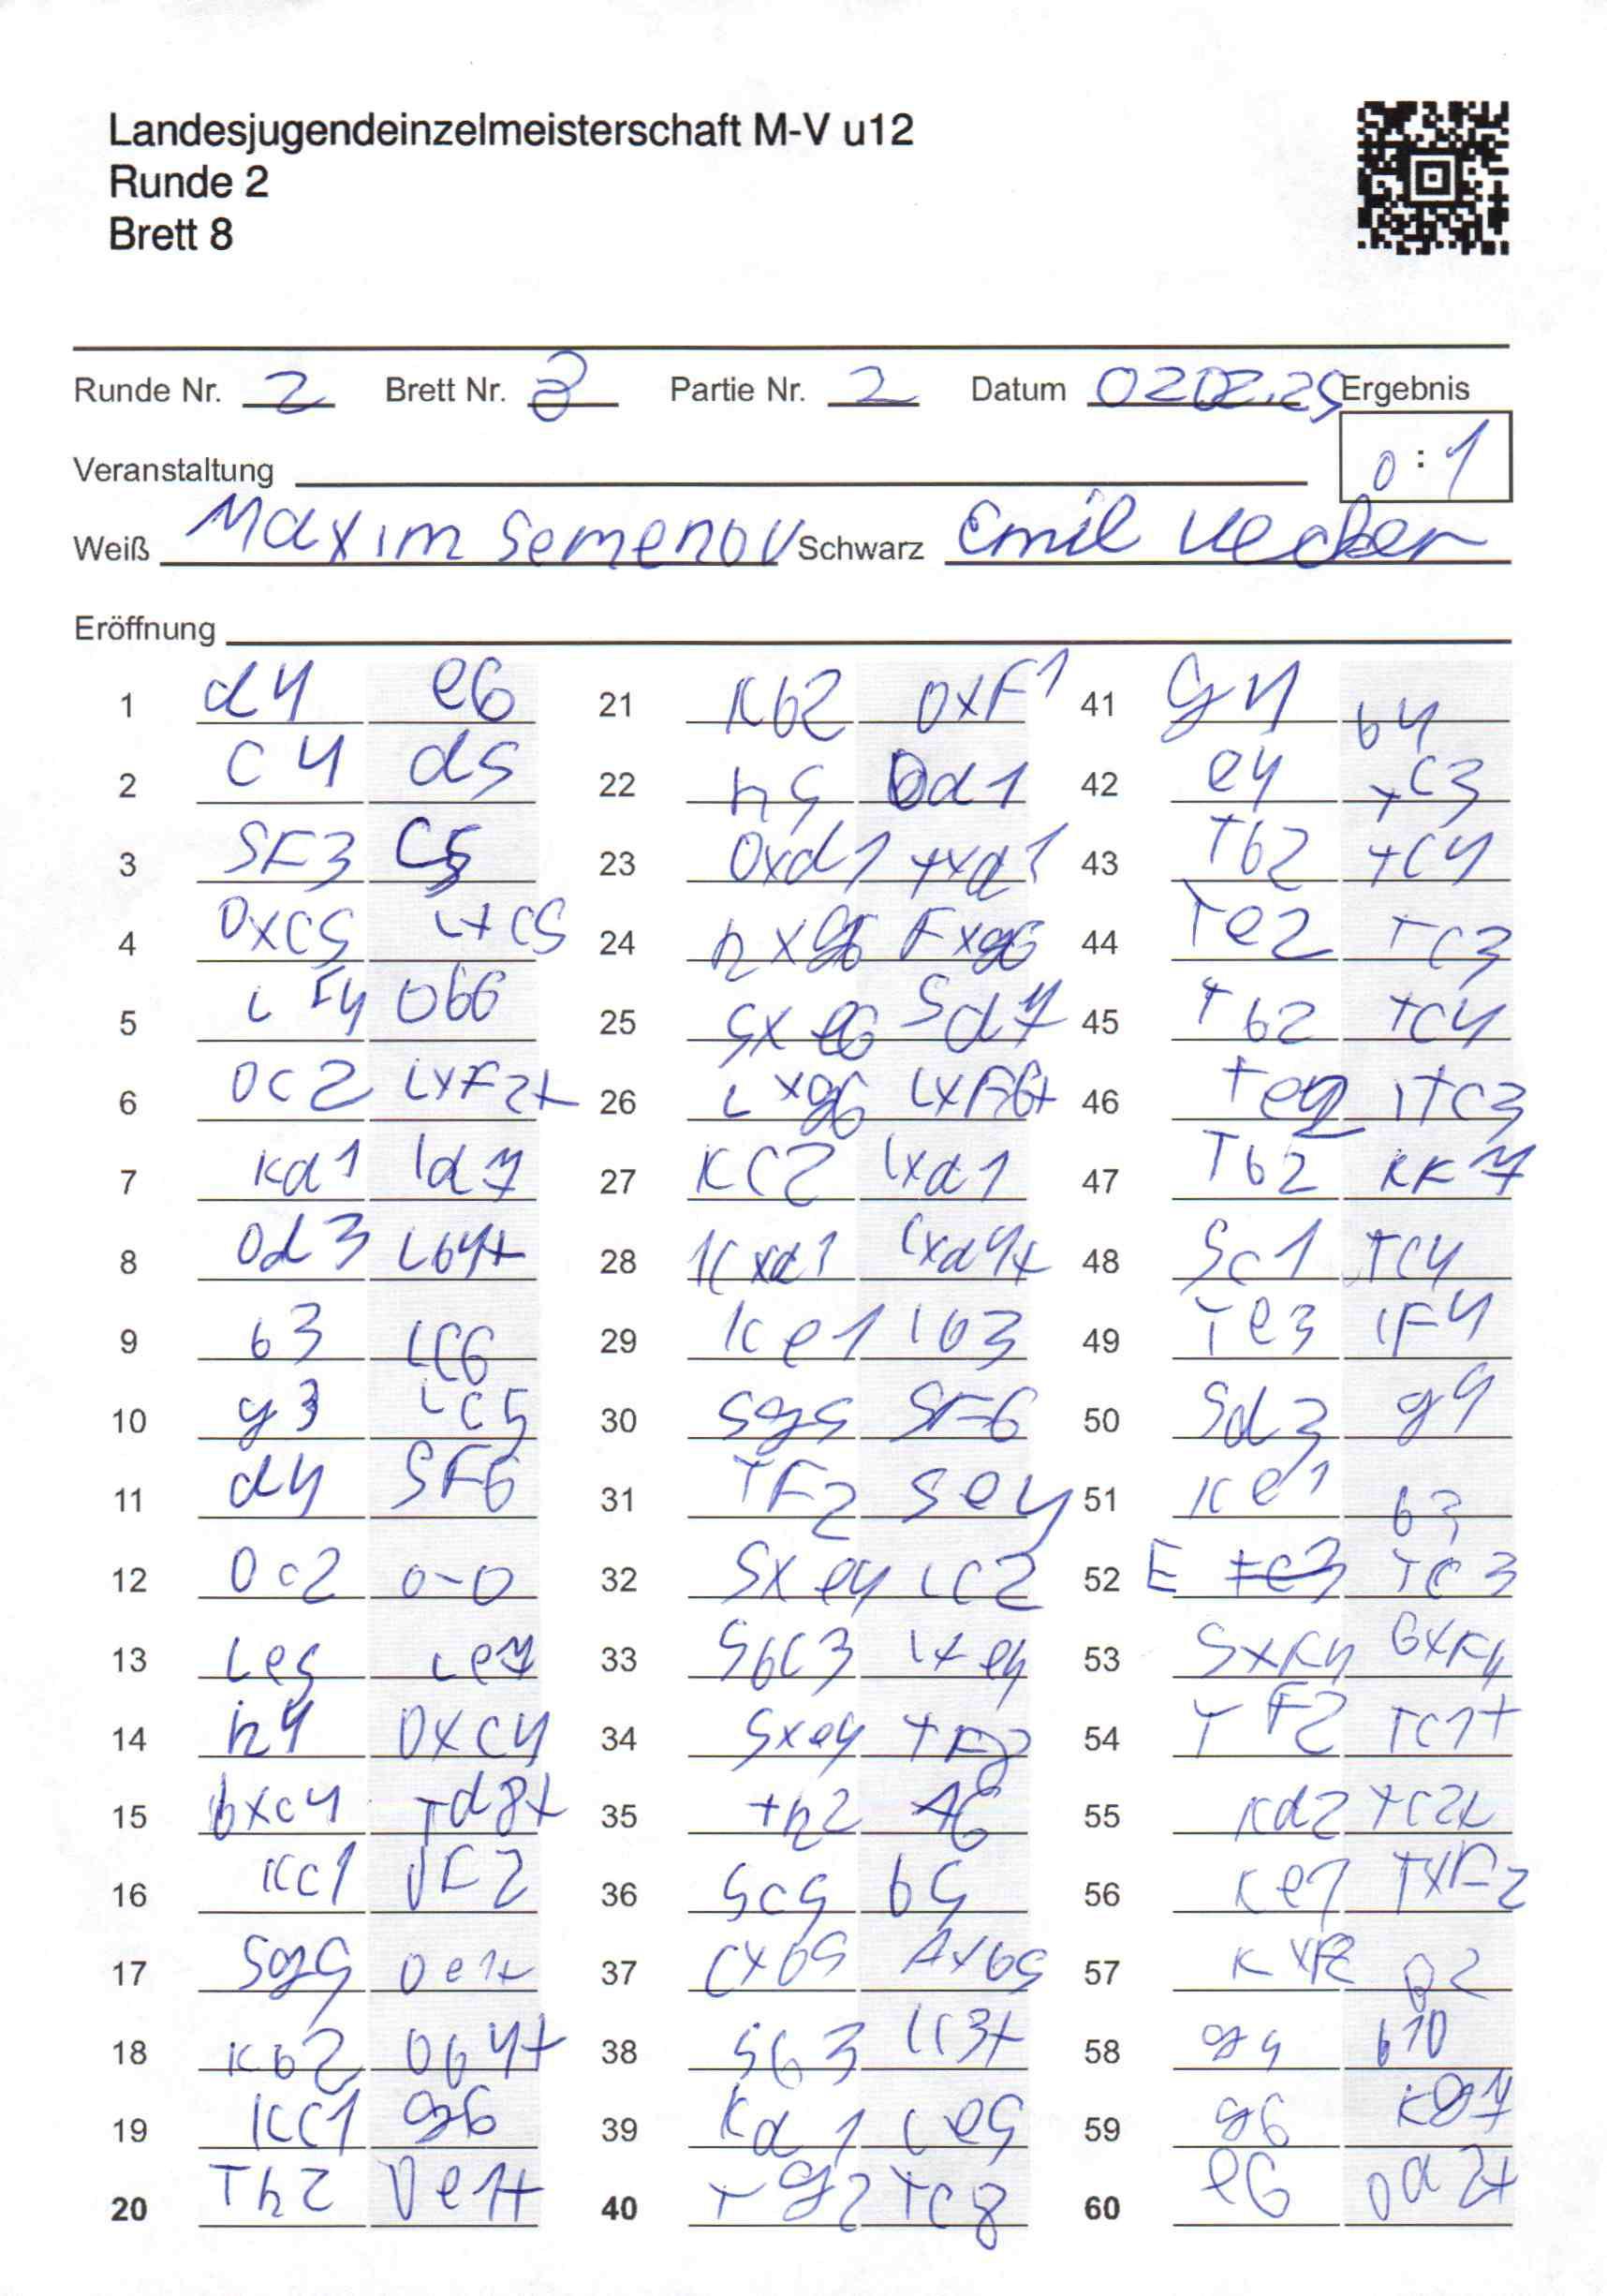 Landesjugendeinzelmeisterschaft M-V u12
Runde 2
Brett 8
Runde Nr. 2 Brett Nr. 8 Partie Nr. 2 Datum 02.02.25 Ergebnis
Veranstaltung 0 : 1
Weiß Maxim Semenov Schwarz Emil
Eröffnung
1 d4 e6 21 Kb2 DxF1 41 g4 b4
2 c4 d5 22 h5 Dd1 42 e4 TC3
3 SF3 C5 23 Dxd1 Txd1 43 Tb2 TC4
4 DxC5 LxC5 24 hxg6 Fxg6 44 Te2 TC3
5 LF4 Db6 25 Sxe6 Sd7 45 Tb2 TC4
6 Dc2 LxF2+ 26 Lxg6 LxF6+ 46 Te2 TC3
7 Kd1 Ld7 27 KC2 Lxd1 47 Tb2 KF7
8 Dd3 Lb4+ 28 Kxd1 Lxd4+ 48 Sc1 TC4
9 b3 LC6 29 Ke1 Lb3 49 Te3 LF4
10 g3 LC5 30 Sg5 SF6 50 Sd3 g4
11 d4 SF6 31 TF2 Se4 51 Ke1 b3
12 Dc2 0-0 32 Sxe4 LC2 52 E TC3
13 Le5 Le7 33 SbC3 Lxe4 53 SxF4 GxF4
14 h4 DxC4 34 Sxe4 TF7 54 TF2 TC1+
15 bxc4 Td8+ 35 Th2 A6 55 Kd2 TC2+
16 Kc1 DF2 36 Sc5 b5 56 Ke1 TxF2
17 Sg5 De1+ 37 Cxb5 Axb5 57 KxF2 B2
18 Kb2 Db4+ 38 Sb3 LC3+ 58 g5 b1D
19 KC1 g6 39 Kd1 Le5 59 g6 Kg7
20 Th2 De1+ 40 Tg2 TC8 60 e6 Dd2+